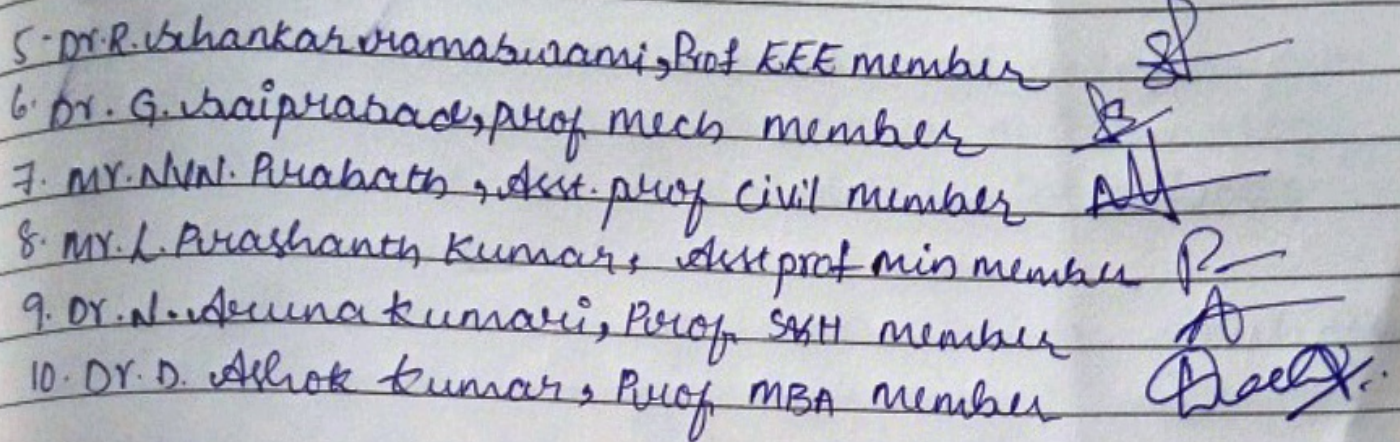 5. Dr. R. Shankar ramaswami, Prof EEE member
6. Dr. G. Saiprasad, prof mech member
7. Mr. N.V.N. Prabath, Asst. prof civil member
8. Mr. L. Prashanth Kumar, Asst prof min member
9. Dr. N. Aruna kumari, Prof S&H member
10. Dr. D. Ashok kumar, Prof MBA member